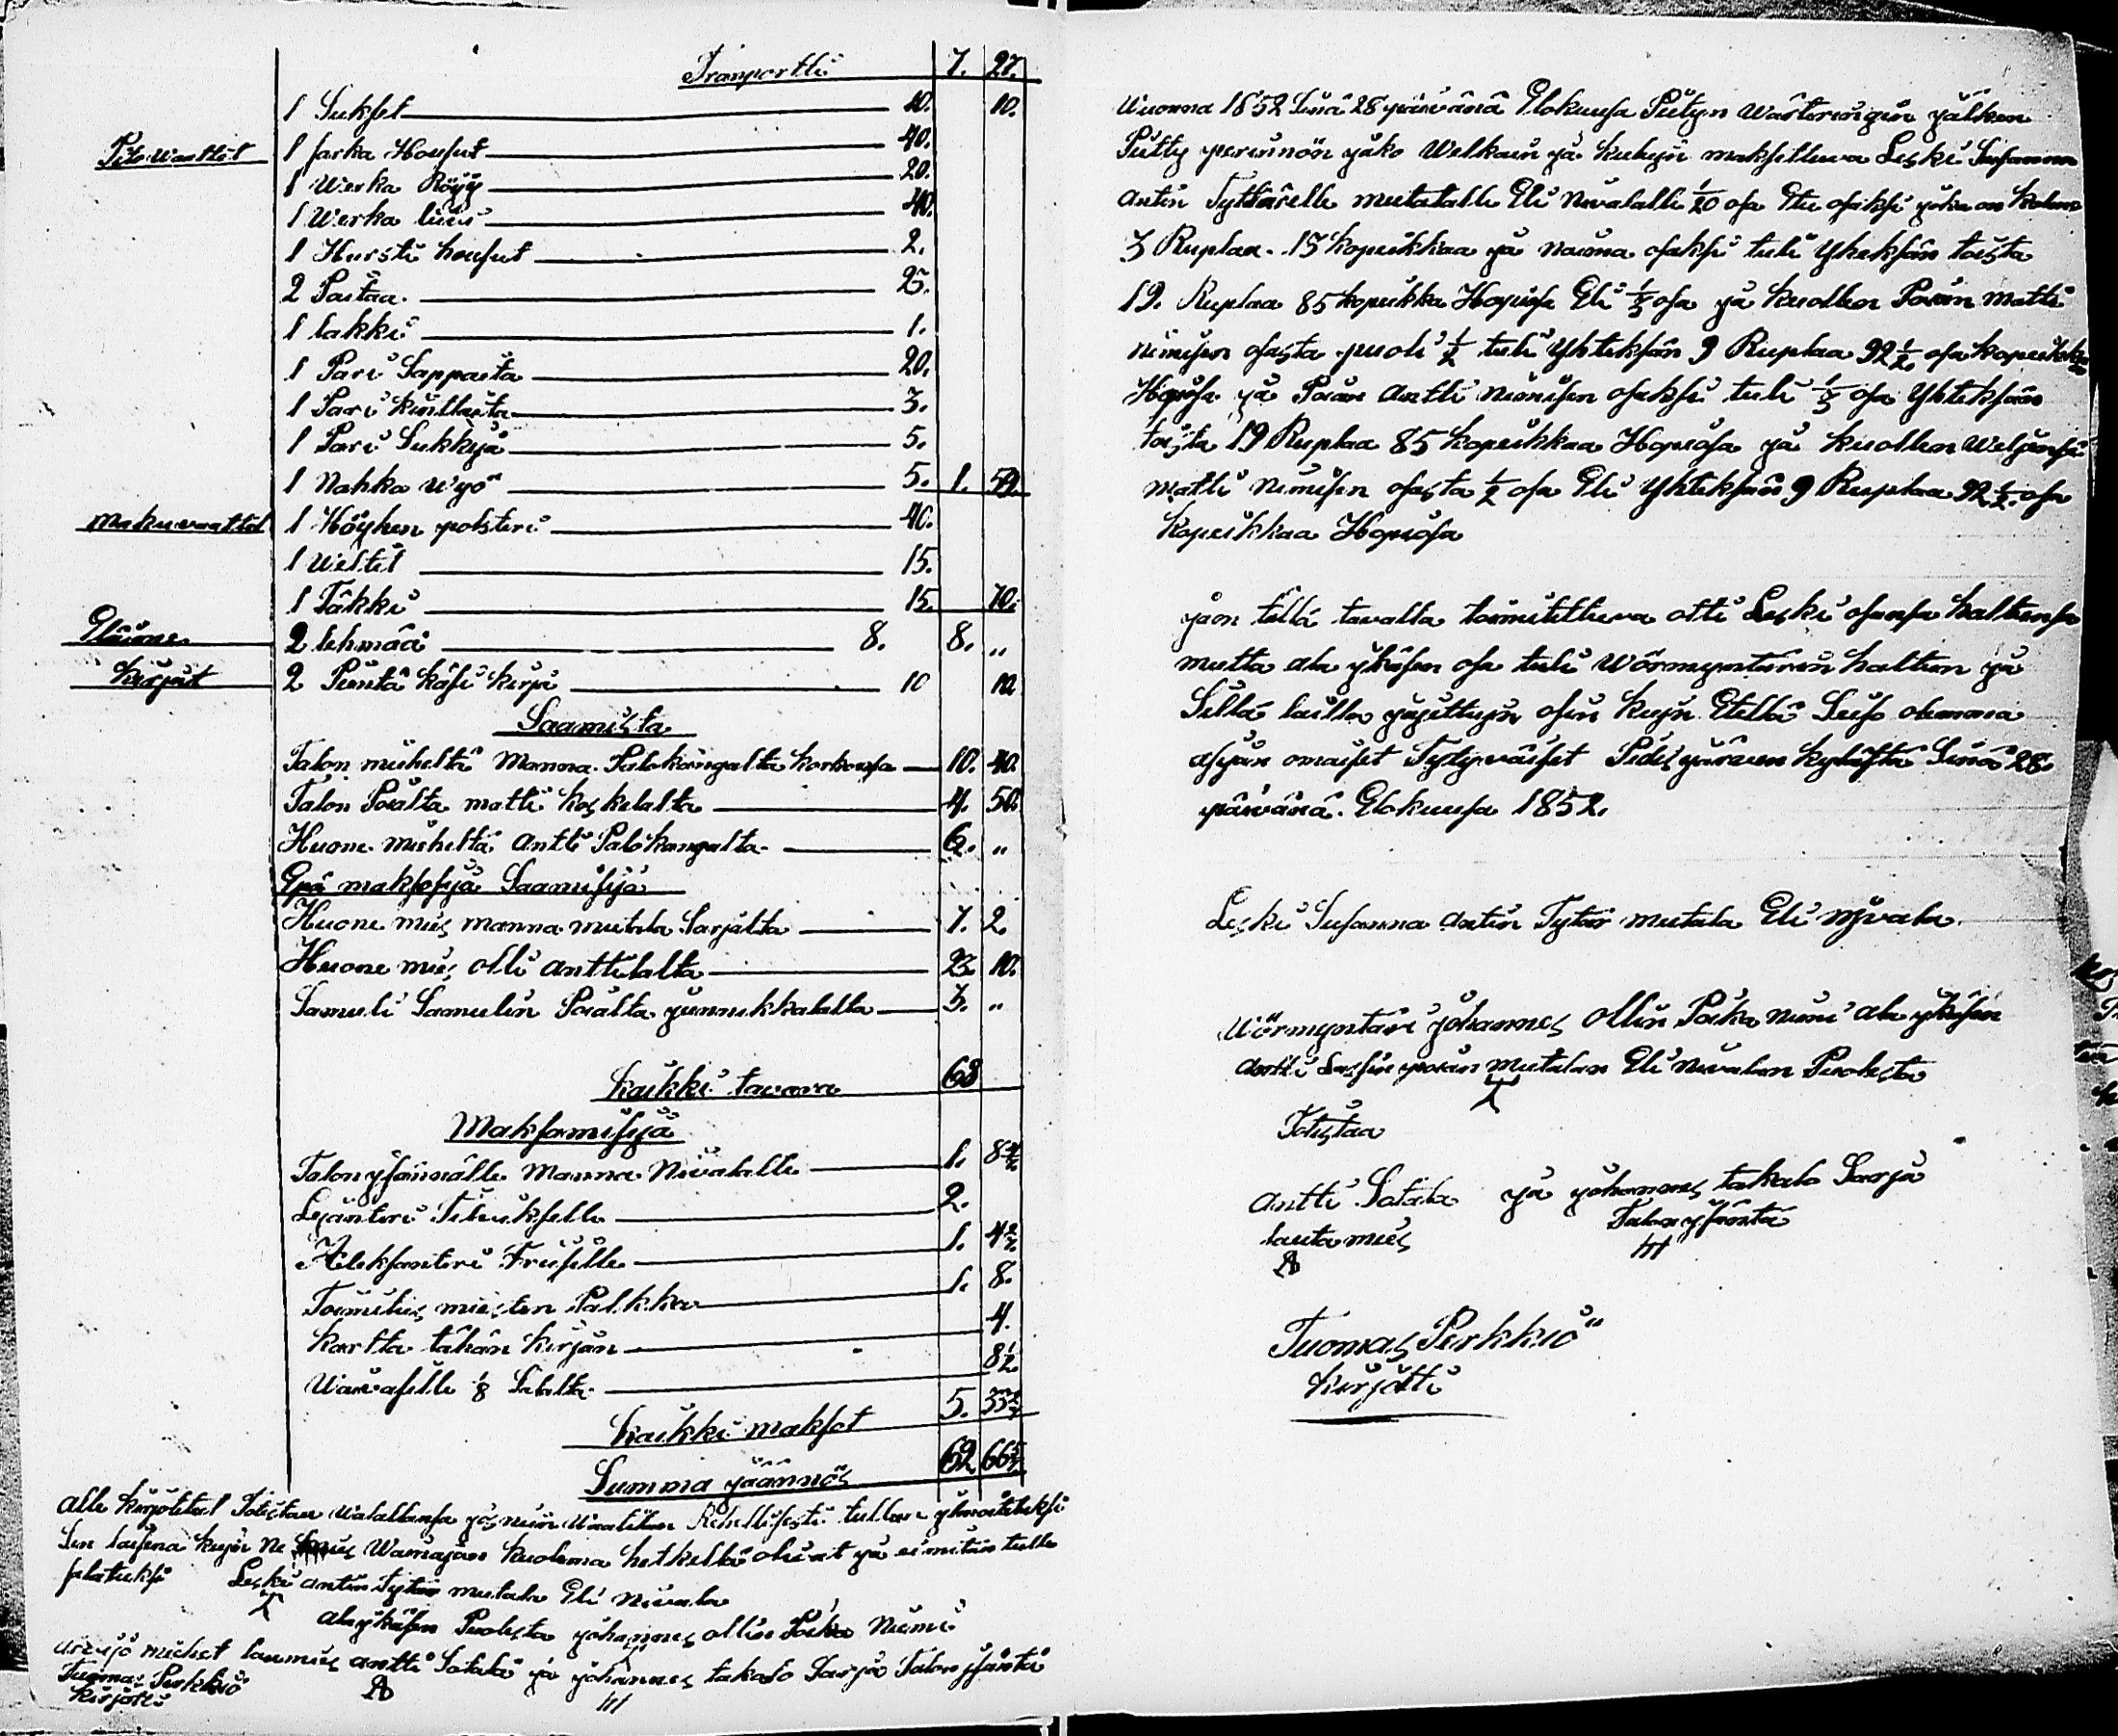 Tranportti 7. 27.
1 Sukset 10. 10.
Pito waattet 1 sarka Housut 40.
1 Werka Röyy 20.
1 Werka liivi 40.
1 Hursti housut 2.
2 Paitaa 25.
1 lakki 1.
1 Pari Sappaita 20.
1 Pari kinttaita 3.
1 Pari Sukkija 5.
1 Nahka wyö 5. 1. 59.
Makuwaattet 1 Höyhen polsteri 40.
1 Weltit 15.
1 Täkki 15. 70.
Eläime 2 lehmää 8. 8. "
kirjat 2 Piäntä käsi kirja 10 10
Saamista
Talon mieheltä Manna Palokangalta korkonsa 10. 40.
Talon Poialta matti koskelalta 4. 50.
Huone mieheltä Antti Palokangalta 6. "
Epä maksosija Saamisija
Huone mies manna mutala Sarjalta 7. 2.
Huone mies olli anttilalta 23. 10.
Samuli Samulin Poialta junnukkalalta 3. "
kaikki tavara 68
Maksamisija
Talon ysännälle Manna Nivalalle 1. 8 4/7
Lejänteri Tiliukselle 2.
Aleksanteri Friiselle 1. 4 2/7
Toimitus miesten Palkka 1. 8.
Kartta tähän kirjan 4.
Waivasille 1/8 Sadalta 8 1/2
Kaikki maksot 5. 33 2/7
Summa jäännös 62 66 5/7
alle kirjoitetut Totistaa Walallansa jos niin Waatitan Rehellisesti tullan ylmoitetuksi
Sen laisena kujn ne Wainajan kuolema hetkellä olivat ja ei mitän tullu
salatuksi Leski antin Tytär mutala Eli Nivala
alaykäsen Puolesta johannes ollin Poika Niemi
arviö miehet laumies antti Satala ja johannes takalo Sarja Talon ysäntä
Tuomas Perkkiö
kirjotti
Wuonna 1852 Sinä 28 päivänä Elokuusa Pietyn Wärteringin jälken
Pietty perinnön jako Welkain ja kulujn maksettuva Leski Susanna
Antin Tyttärelle mutalalle Eli Nivalalle 1/20 osa Etu osaksi joka on kolme
3 Ruplaa 13 kopeikkaa ja naima osaksi tuli Yheksän toista
19. Ruplaa 85 kopeikka Hopiasa Eli 1/3 osa ja kuollen Poian matti
nimisen osasta puoli 1/2 tuli Yhteksän 9 Ruplaa 92 1/2 osa kopeikka
Hopiasa ja Poian Antti nimisen osaksi tuli 1/3 osa Yhteksän
toista 19 Ruplaa 85 kopeikkaa Hopiasa ja kuollen Weljensä
matti nimisen osasta 1/2 osa Eli Yhteksän 9 Ruplaa 92 1/2 osa
kopeikkaa Hopiasa
jaon tällä tavalla toimitettuva otti Leski osansa haltunsa
mutta ala ykäisen osa tuli Wörmyntärin haltun ja
Sillä lailla jajettujn osin kujn Etellä Seiso olemma
asijan omaiset Tytyväiset Pidisjärven kylästä Sinä 28.
päivänä. Elokuusa 1852.
Leski Susanna Antin Tytär mutala Eli nivala
Wörmyntäri johannes Ollin Poika niemi ala ykäsen
Antti Lassin poian Mutalan Eli Nivalan Puolesta
Totistaa
Antti Satala ja johannes takalo Sarja
lautamies Talon ysäntä
Tuomas Perkkiö
kirjotti